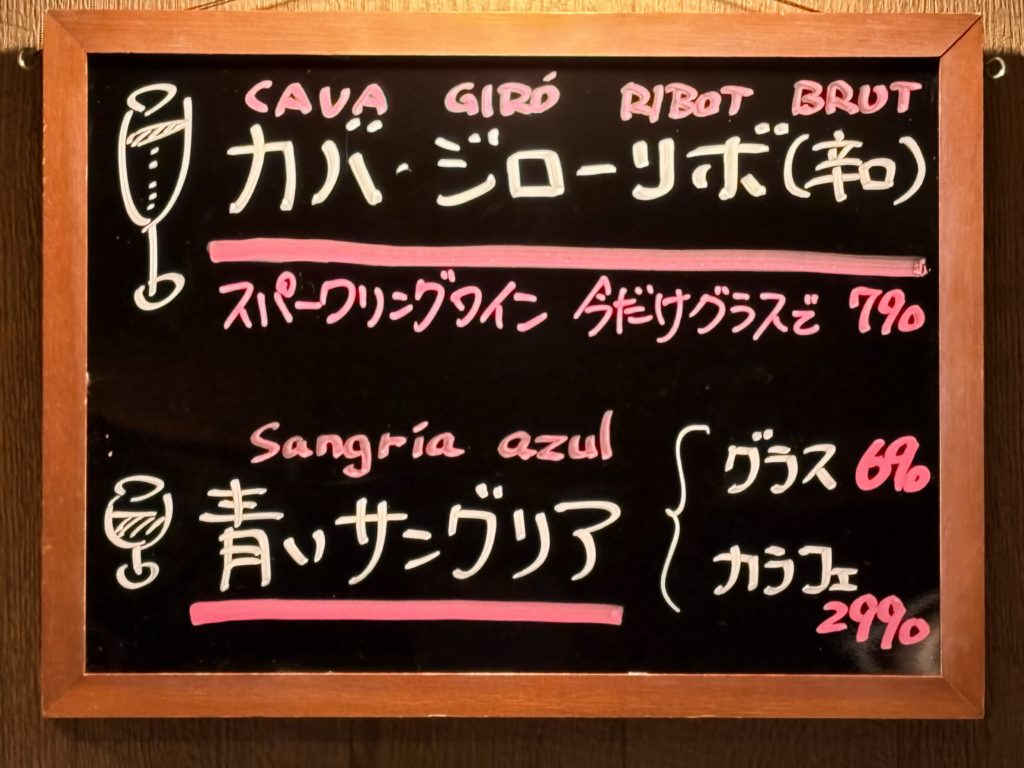 CAVA GIRÓ RIBOT BRUT
カバ・ジローリボ(辛口)
スパークリングワイン 今だけグラスで 790
Sangría azul
青いサングリア
グラス 690
カラフェ
2990